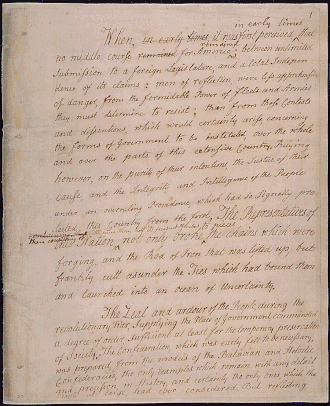 1
in early times
When, in early times it was first perceived, that
no middle course remained for America, between unlimited
Submission to a foreign Legislature and a total Indepen
dence of its claims; men of reflection, were less apprehensive
of danger, from the formidable Power of fleets and Armies
they must determine to resist; than from those Contests
and dissentions, which would certainly arise, concerning
the forms of Government to be instituted, over the whole
and over the parts of this extensive Country. Relying
however, on the purity of their intentions, the Justice of their
cause and the Integrity and Intelligence of the People
under an overruling Providence, which had so Signally pro-
tected this Country from the first, The Representatives of
this Nation, not only broke to pieces the chains which were
forging, and the Rod of Iron that was lifted up; but
frankly cutt asunder the Ties which had bound them
and launched into an ocean of Uncertainty.
The Zeal and ardour of the People during the
revolutionary War, Supplying the Place of Government commanded
a degree of order, Sufficient at least for the temporary preservation
of Society. The Confederation, which was early felt to be necessary,
was prepared, from the models of the Batavian and Helvetic
Confederacies, the only examples which remain with any detail
and precision, in History, and certainly the only ones, which the
People at large had ever considered. But reflecting